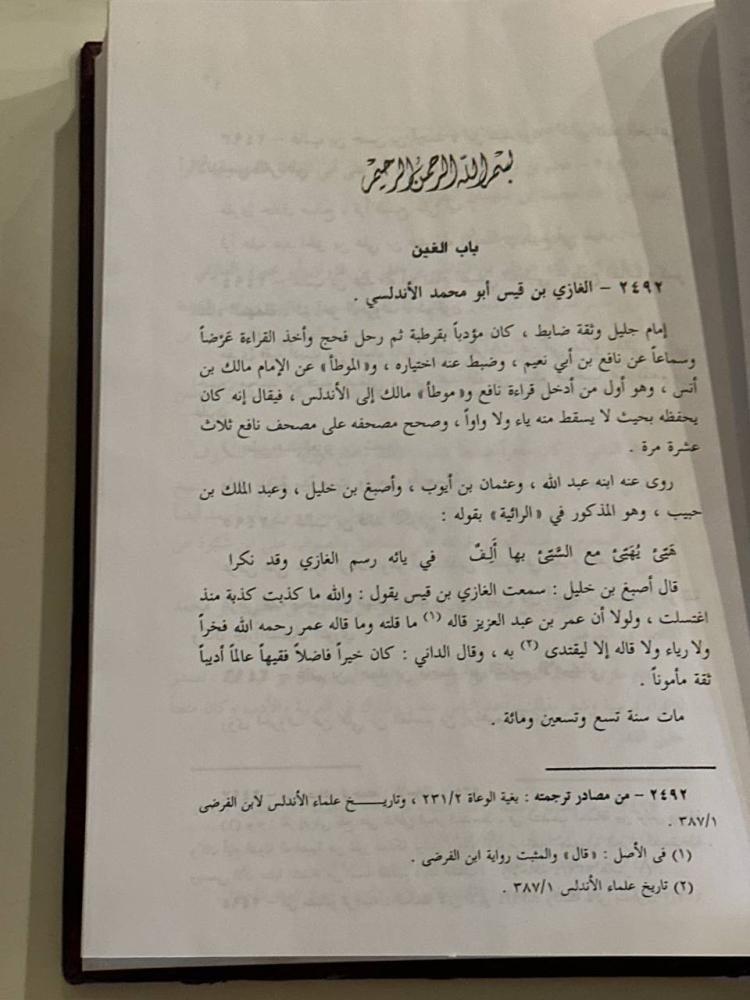 بسم الله الرحمن الرحيم
باب الغين
٢٤٩٢ – الغازي بن قيس أبو محمد الأندلسي .
إمام جليل وثقة ضابط ، كان مؤدباً بقرطبة ثم رحل فحج وأخذ القراءة عَرْضاً
وسماعاً عن نافع بن أبي نعيم ، وضبط عنه اختياره ، و«الموطأ» عن الإمام مالك بن
أنس ، وهو أول من أدخل قراءة نافع و«موطأ» مالك إلى الأندلس ، فيقال إنه كان
يحفظه بحيث لا يسقط منه ياء ولا واواً ، وصحح مصحفه على مصحف نافع ثلاث
عشرة مرة .
روى عنه ابنه عبد الله ، وعثمان بن أيوب ، وأصبغ بن خليل ، وعبد الملك بن
حبيب ، وهو المذكور في «الرائية» بقوله :
هَيِّئْ يُهَيِّئْ مع السَّيِّئْ بها أَلِفٌ في يائه رسم الغازي وقد نكرا
قال أصبغ بن خليل : سمعت الغازي بن قيس يقول : والله ما كذبت كذبة منذ
اغتسلت ، ولولا أن عمر بن عبد العزيز قاله (١) ما قلته وما قاله عمر رحمه الله فخراً
ولا رياء ولا قاله إلا ليقتدى (٢) به ، وقال الداني : كان خيراً فاضلاً فقيهاً عالماً أديباً
ثقة مأموناً .
مات سنة تسع وتسعين ومائة .
٢٤٩٢ – من مصادر ترجمته : بغية الوعاة ٢٣١/٢ ، وتاريـــخ علماء الأندلس لابن الفرضى
٣٨٧/١ .
(١) فى الأصل : «قال» والمثبت رواية ابن الفرضى .
(٢) تاريخ علماء الأندلس ٣٨٧/١ .